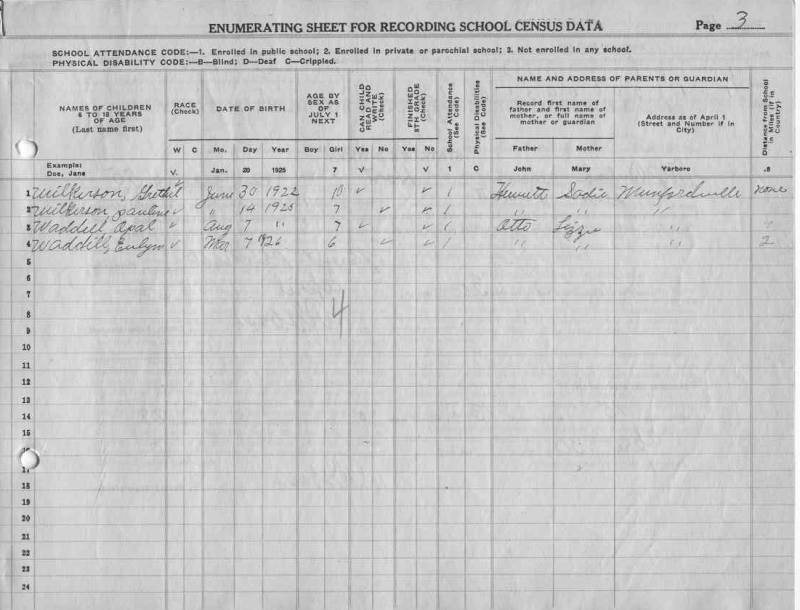 ENUMERATING SHEET FOR RECORDING SCHOOL CENSUS DATA Page 3
SCHOOL ATTENDANCE CODE:—1. Enrolled in public school; 2. Enrolled in private or parochial school; 3. Not enrolled in any school.
PHYSICAL DISABILITY CODE:—B—Blind; D—Deaf C—Crippled.
NAMES OF CHILDREN
6 TO 18 YEARS
OF AGE
(Last name first)
RACE
(Check)
W C
DATE OF BIRTH
Mo. Day Year
AGE BY
SEX AS
OF
JULY 1
NEXT
Boy Girl
CAN CHILD
READ AND
WRITE
(Check)
Yes No
FINISHED
8TH GRADE
(Check)
Yes No
School Attendance
(See Code)
Physical Disabilities
(See Code)
NAME AND ADDRESS OF PARENTS OR GUARDIAN
Record first name of
father and first name of
mother, or full name of
mother or guardian
Father Mother
Address as of April 1
(Street and Number if in
City)
Distance from School
in Miles (if in
Country)
Example:
Doe, Jane V. Jan. 20 1925 7 V V 1 C John Mary Yarboro .8
1 Wilkerson, Grethel ✓ June 30 1922 10 ✓ ✓ 1 Sadie Munfordville none
2 Wilkerson, Pauline ✓ " 14 1925 7 ✓ ✓ 1 " " "
3 Waddill, Opal ✓ Aug 7 " 7 ✓ ✓ 1 Otto Lizzie "
4 Waddill, Evelyn ✓ Mar 7 1926 6 ✓ ✓ 1 " " " 2
5
6
7
8 4
9
10
11
12
13
14
15
17
18
19
20
21
22
23
24